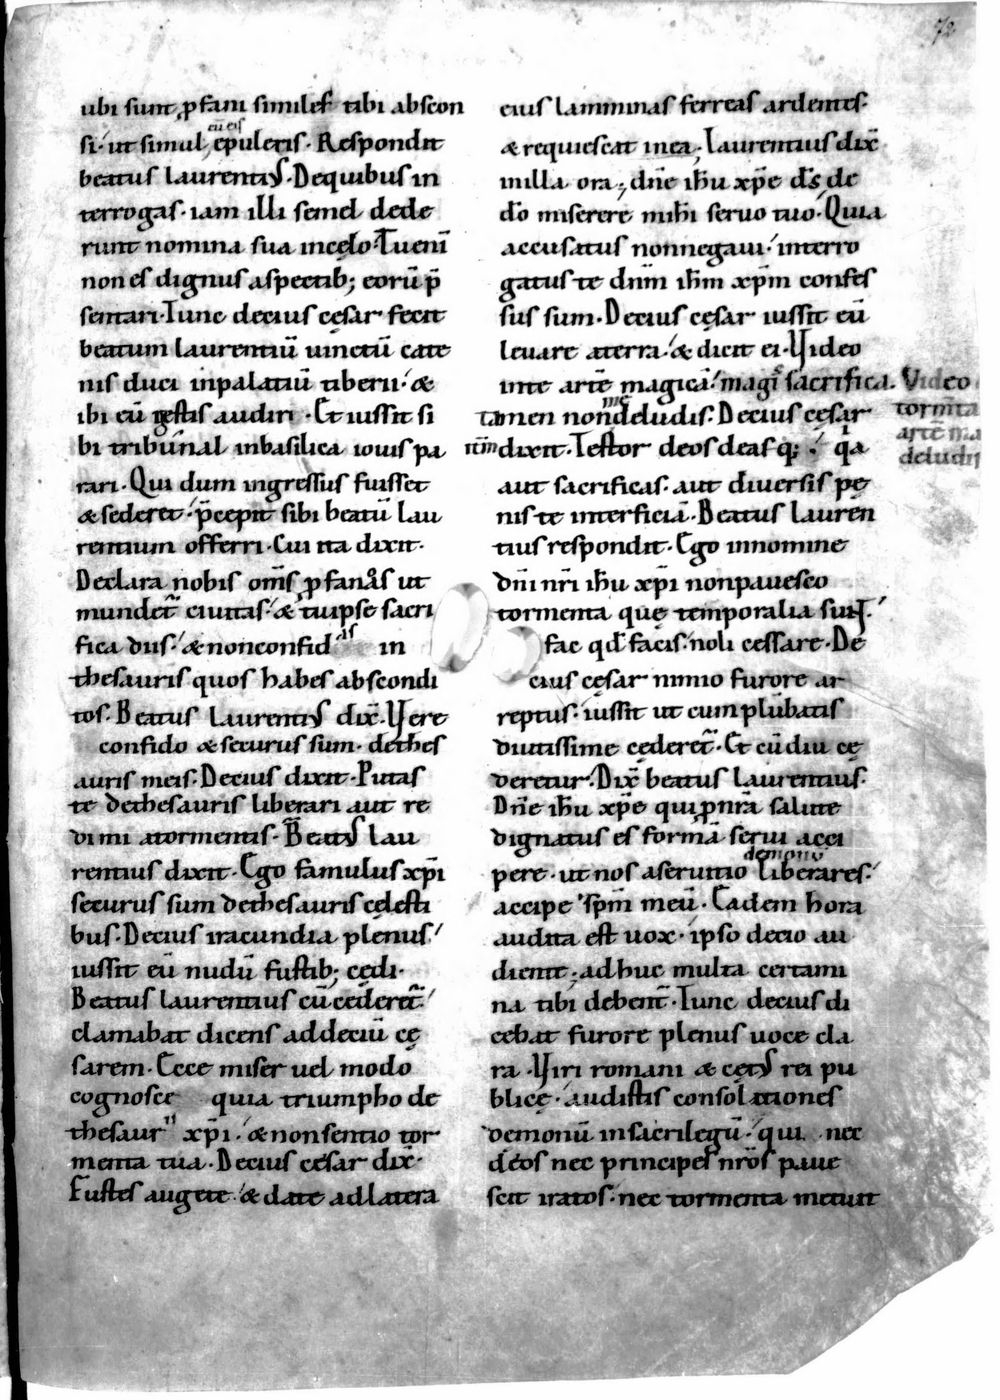 72
ubi sunt ꝓfani similes tibi abscon
si· ut simul, epuleris· Respondit
cū eis
beatus laurentiꝰ· Dequibus in
terrogas· iam illi semel dede
runt nomina sua incęlo· Tuenī
non es dignus aspectib; eorū p̄
sentari· Tunc decius cęsar fecit
beatum laurentiū uinctū cate
nis duci inpalatiū tiberii· &
ibi eū gestis audiri· Et iussit si
bi tribunal inbasilica iouis pa
rari· Qui dum ingressus fuisset
& sederet· p̄cepit sibi beatū lau
rentium offerri· Cui ita dixit·
Declara nobis om̄s ꝓfanos ut
mundet̄ ciuitas· & tuipse sacri
fica diis· & nonconfidas in
thesauris quos habes abscondi
tos· Beatus laurentiꝰ dix̄· Vere
confido & securus sum· dethes
auris meis· Decius dixit· Putas
te dethesauris liberari aut re
dimi atormentis· Beatꝰ lau
rentius dixit· Ego famulus xp̄i
securus sum dethesauris cęlesti
bus· Decius iracundia plenus
iussit eū nudū fustib; cędi·
Beatus laurentius cū cederet̄
clamabat dicens addeciū cę
sarem· Ecce miser uel modo
cognosce quia triumpho de
thesauris xp̄i· & nonsentio tor
menta tua· Decius cęsar dix̄·
Fustes augete· & date adlatera
eius lamminas ferreas ardentes·
& requiescat inea, Laurentius dix̄
inilla ora; dn̄e ih̄u xp̄e d̄s de
do miserere mihi seruo tuo· Quia
accusatus nonnegaui· interro
gatus te dn̄m ih̄m xp̄m confes
sus sum· Decius cęsar iussit eū
leuare aterra· & dicit ei· Video
inte artē magicā· magis sacrifica.
tamen nondeludis· Decius cęsar
me
dixit· Testor deos deasq; · q̇a
aut sacrificas· aut diuersis pę
nis te interficiā· Beatus lauren
tius respondit· Ego innomine
dn̄i nr̄i ih̄u xp̄i nonpauesco
tormenta quę temporalia sunt·
fac qd̄ facis· noli cessare· De
cius cęsar nimio furore ar
reptus· iussit ut cum plūbatis
diutissime cęderet̄· Et cū diu cę
deretur· Dix̄ beatus laurentius·
Dn̄e ih̄u xp̄e qui ꝓnr̄a salute
dignatus es formā serui acci
pere· ut nos aseruitio liberares·
demonū
accipe sp̄m meū· Eadem hora
audita est uox· ipso decio au
diente· adhuc multa certami
na tibi debent̄· Tunc decius di
cebat furore plenus uoce cla
ra· Viri romani & cętꝰ rei pu
blicę· audistis consolationes
demonū insacrilegū· qui nec
deos nec principes nr̄os paue
scit iratos· nec tormenta metuit
Video
torm̄ta
artē ma
deludis